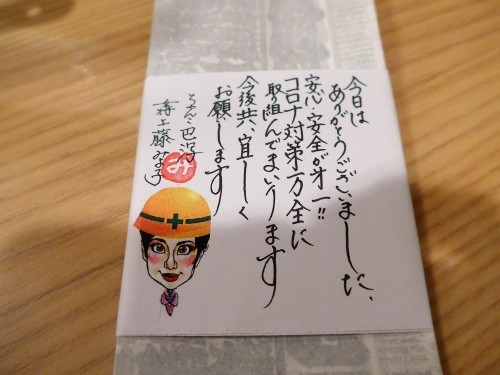 今日は
ありがとうございました、
安心・安全が才一!!
コロナ対策万全に
取り組んでまいります
今後共、宜しく
お願いします
ちゃんこ巴潟
み